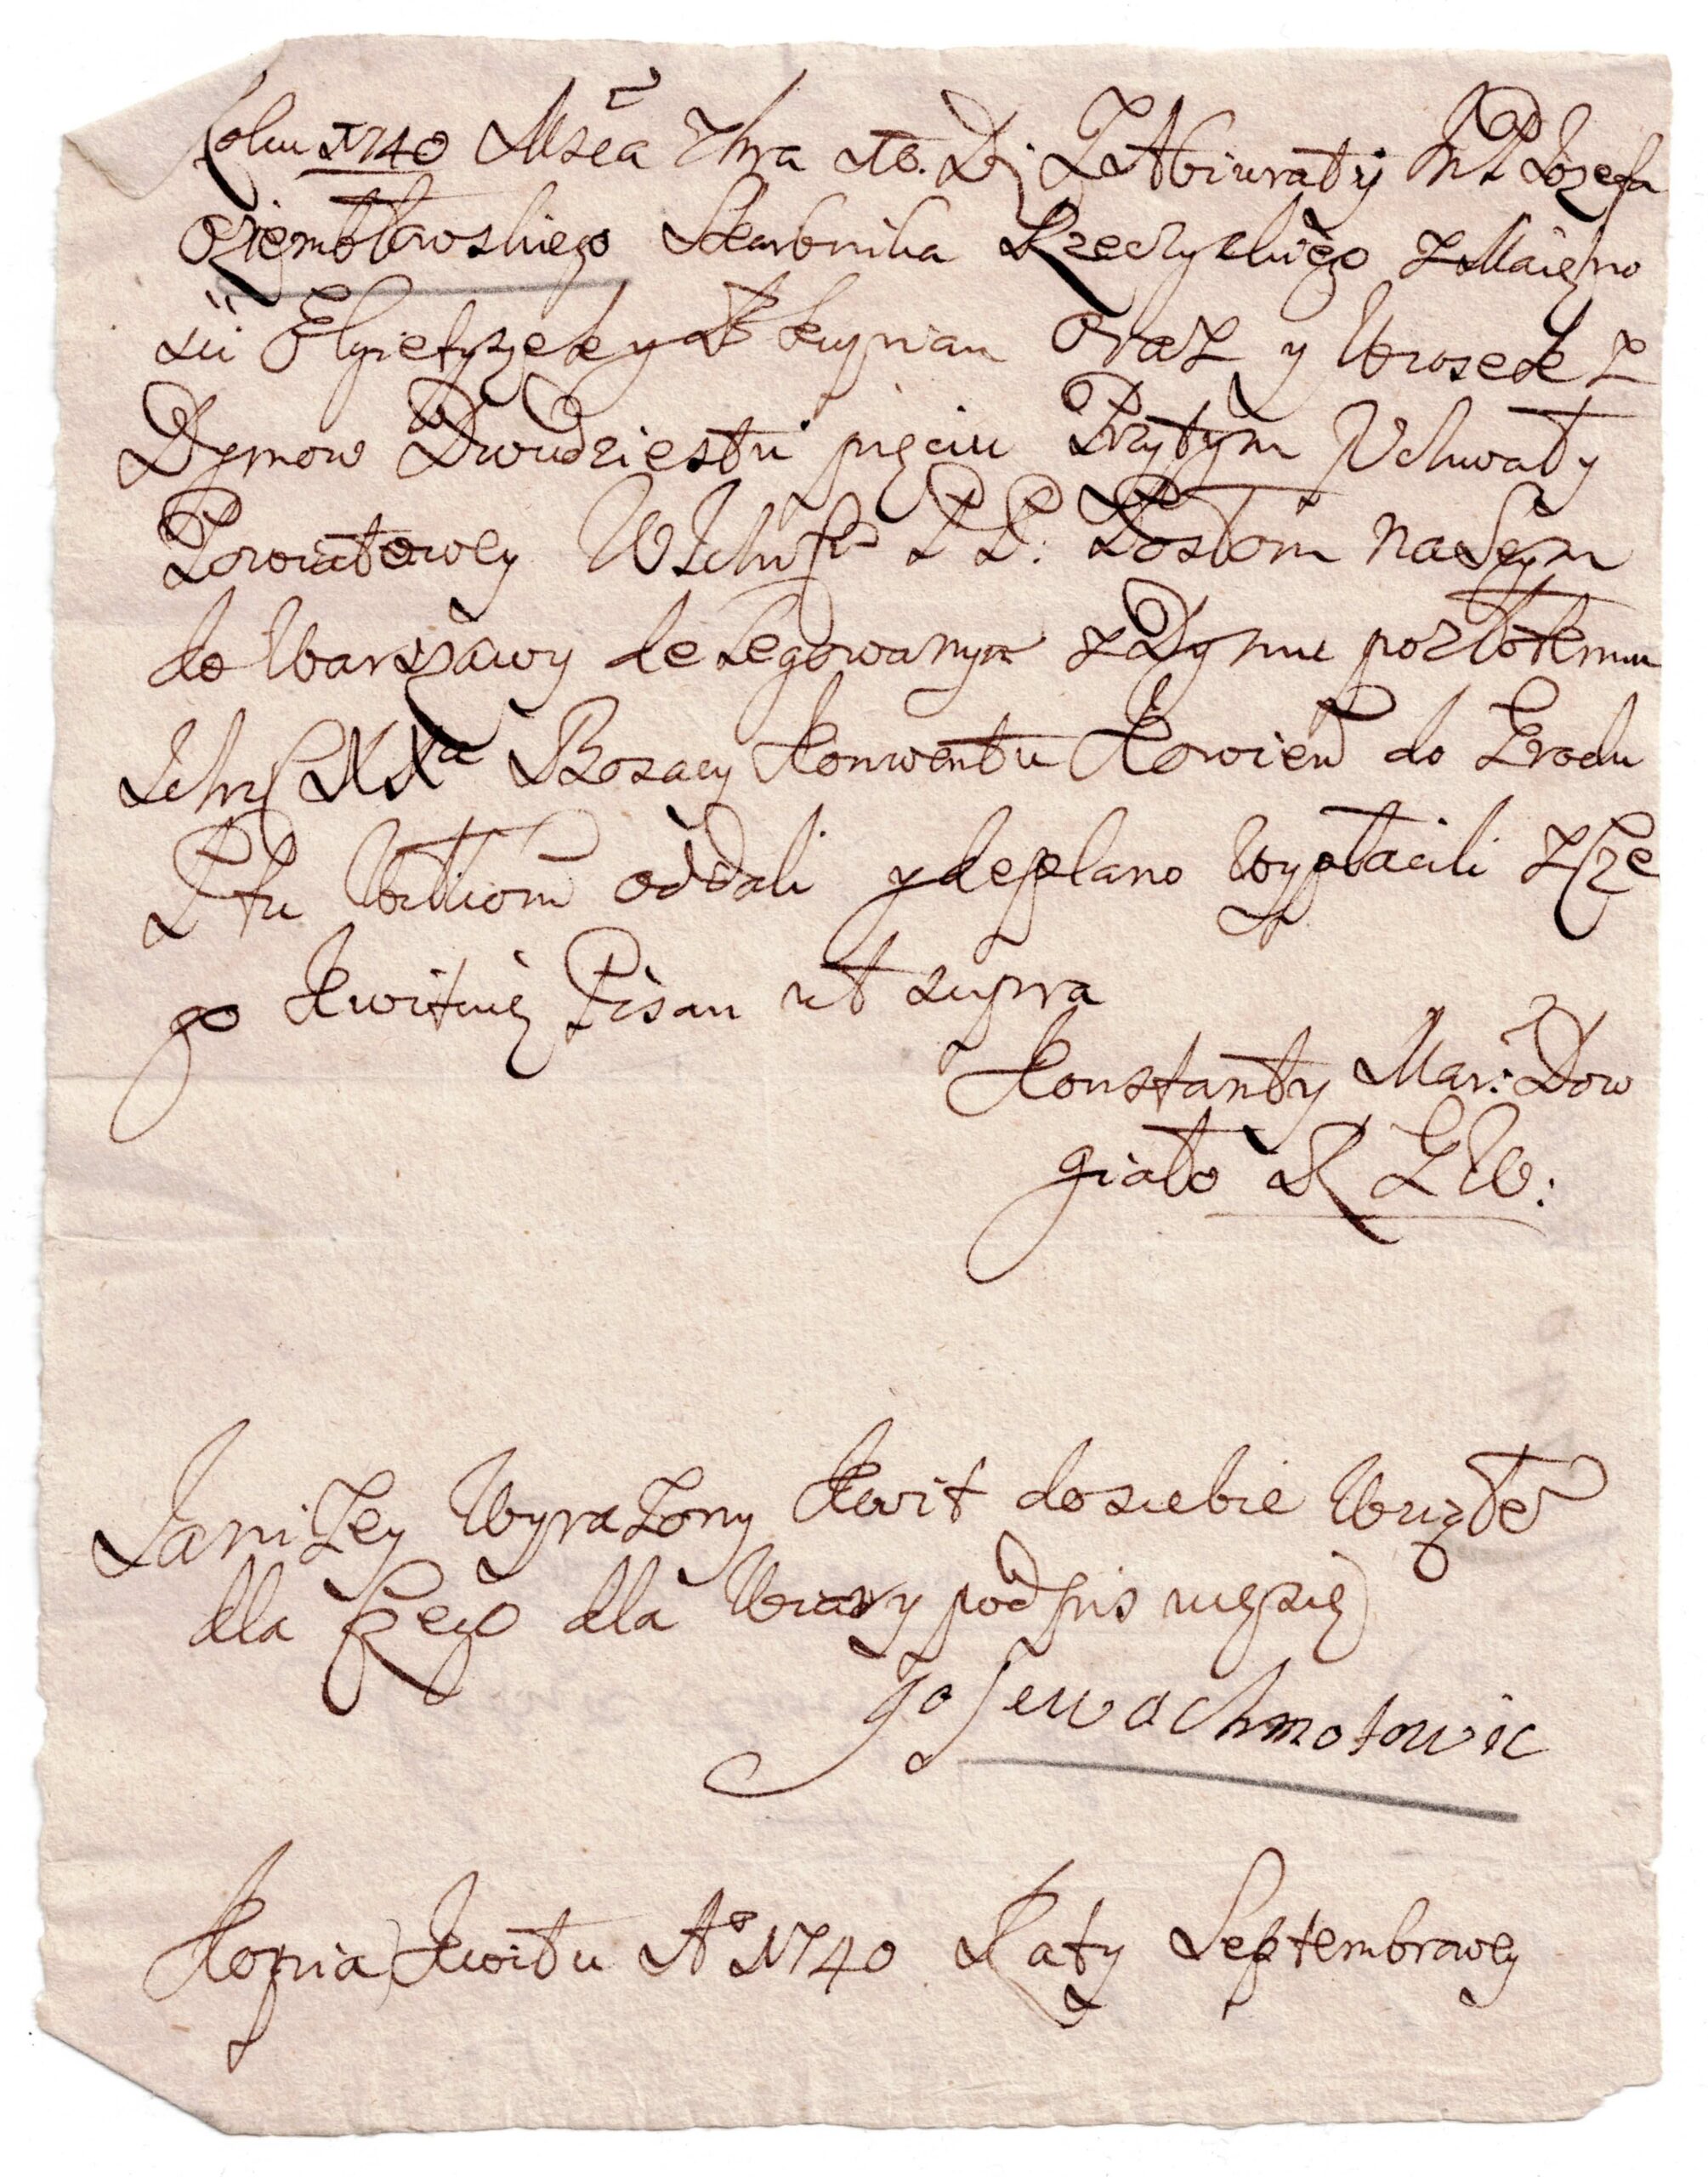 Roku 1740 Msca 7bra 16. D: Z Abiuraty JmP Jozefa
Oziembłowskiego Skarbnika Rzeczyckiego z Maiętno
sci Elgietyszek y Skupian oraz y Woroselk z
Dymow Dwudziestu pięciu Przytym Uchwały
Powiatowey WIchm PP: Posłom na Seym
do Warszawy delegowanym z Dymu po złotemu
Ichm XXa Bosacy Konwentu Kowien do Grodu
Pttu Wilkom oddali y de plano wypłacili z cze
go kwituię Pisan ut supra
Konstanty Mar: Dow
giało R G W:
Ja niżey wyrażony kwit do siebie wziąłem
dla czego dla wiary podpisuię się
Jo Jerwachmotowic
Kopia Kwitu A° 1740 Raty Septembrowey